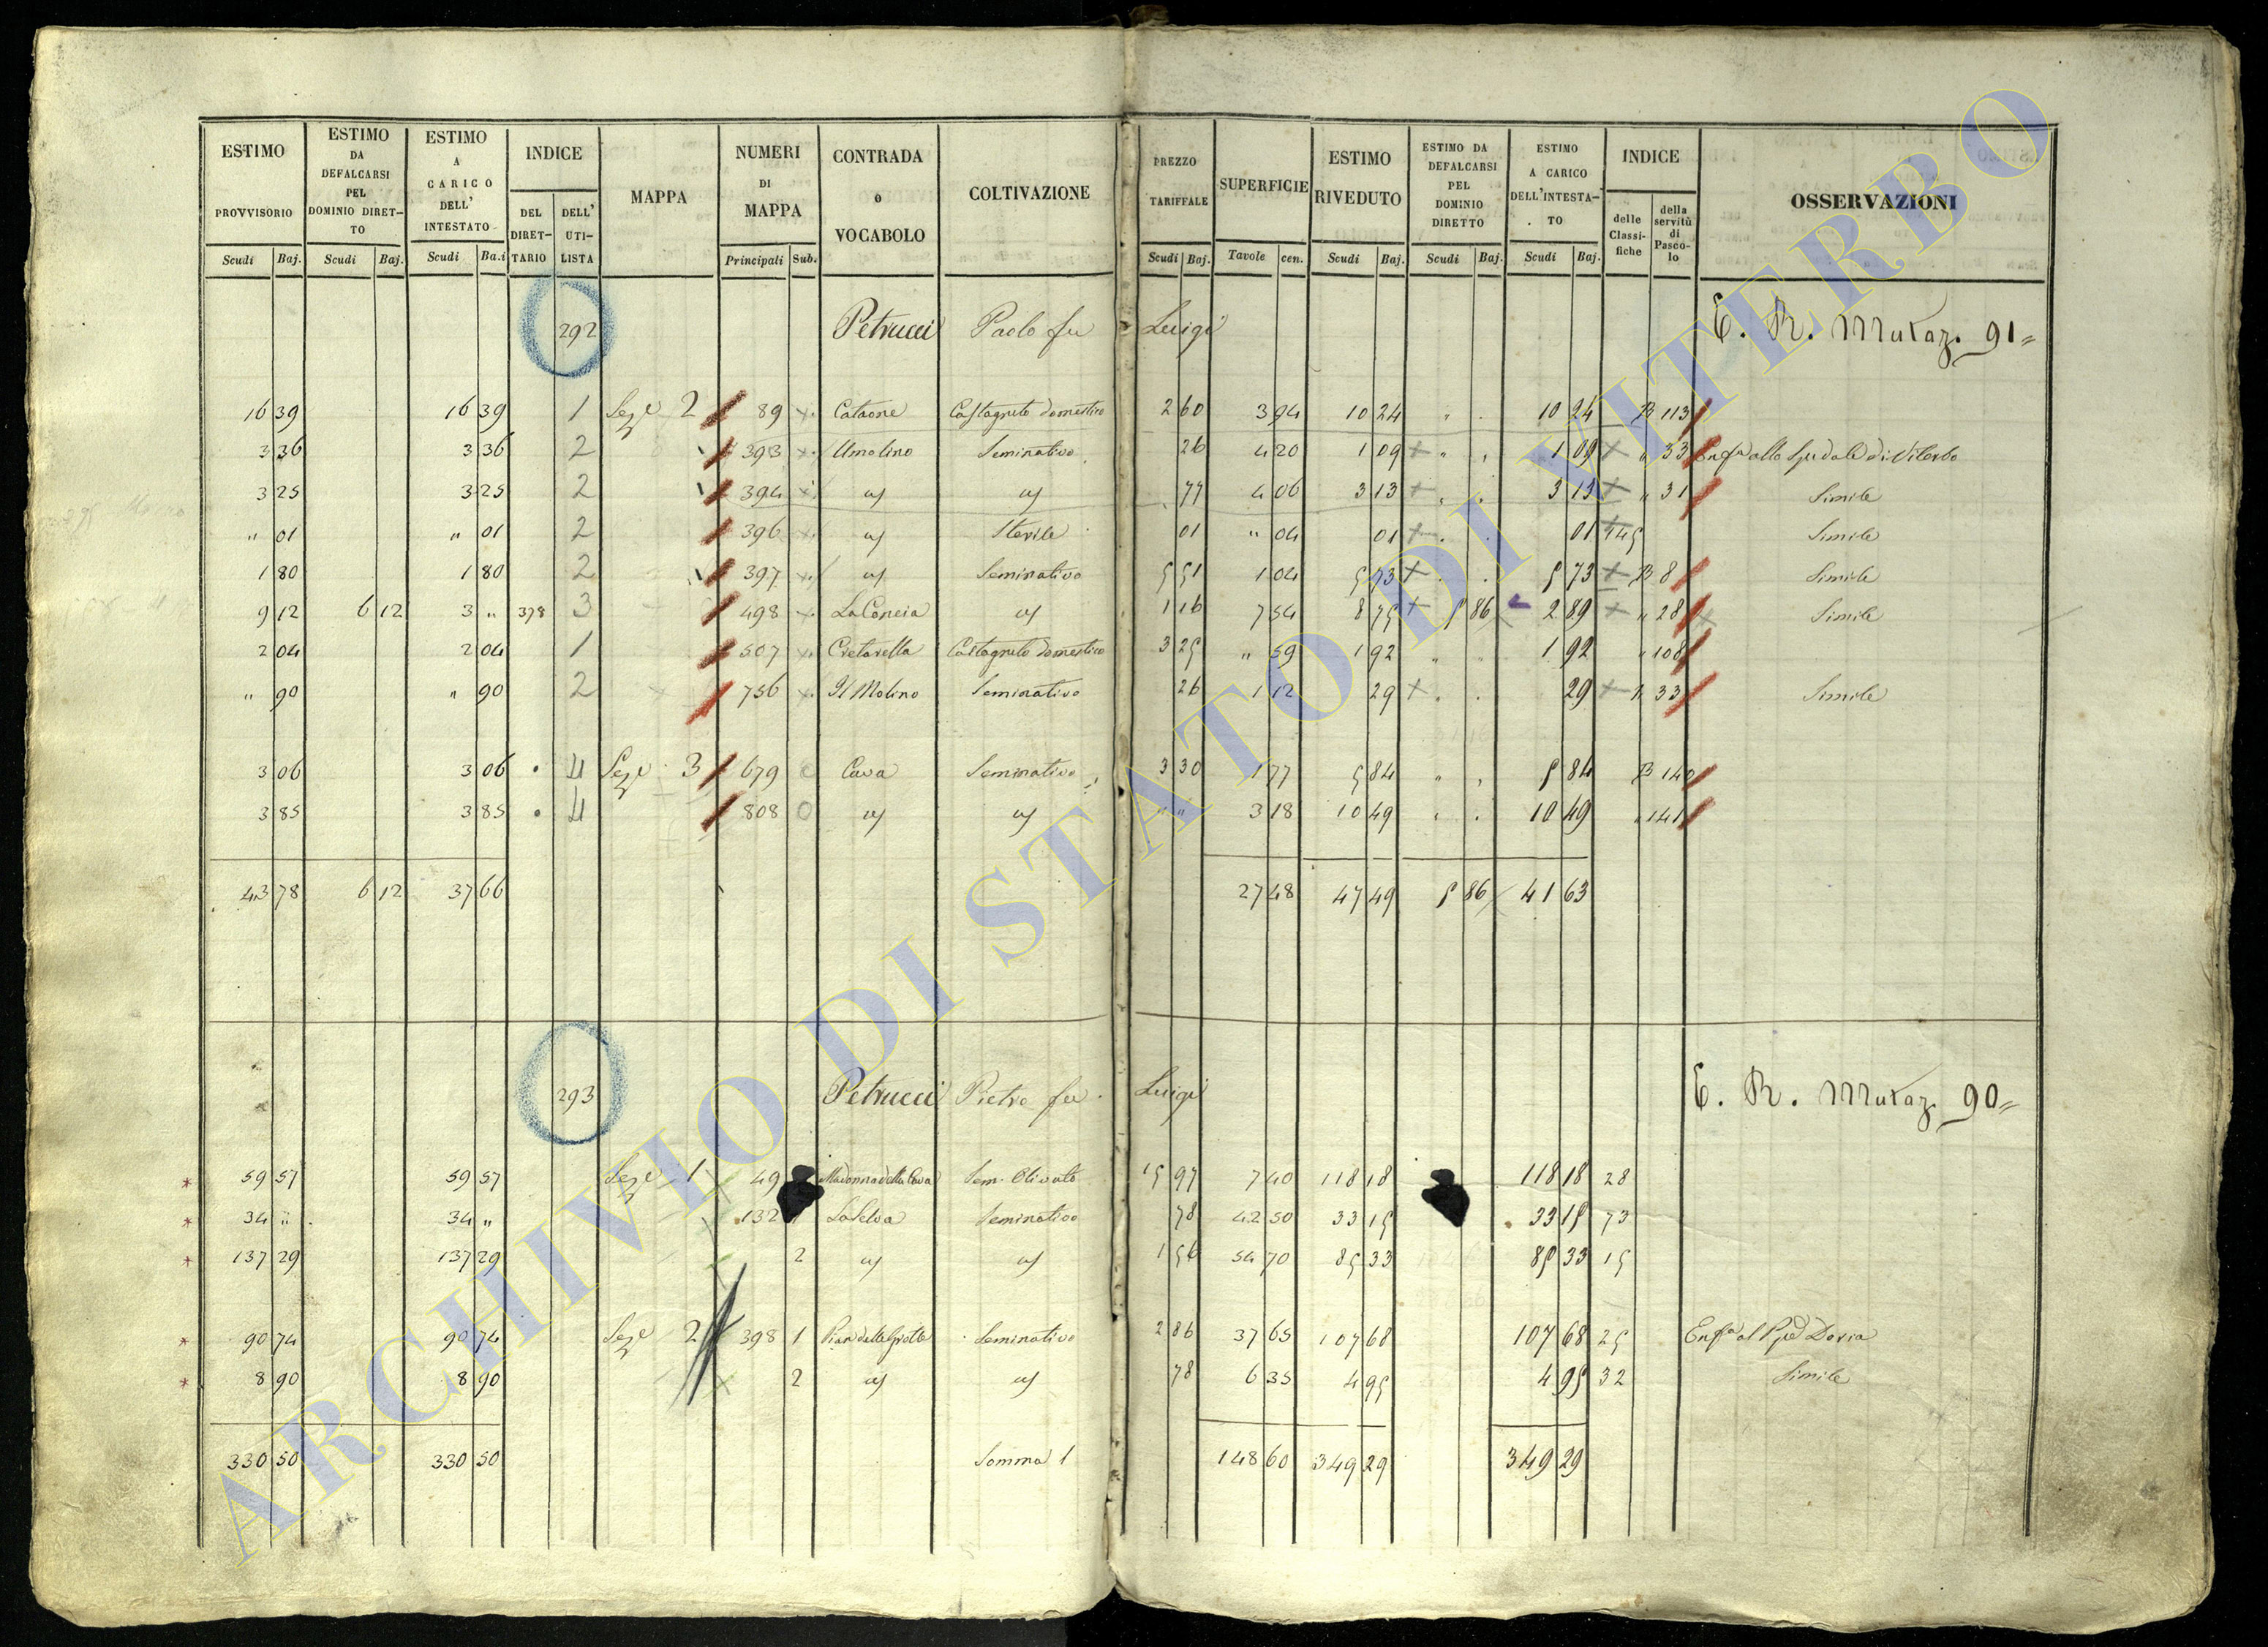 ESTIMO PROVVISORIO | ESTIMO DA DEFALCARSI PEL DOMINIO DIRETTO | ESTIMO A CARICO DELL' INTESTATO | INDICE | MAPPA | NUMERI DI MAPPA | CONTRADA o VOCABOLO | COLTIVAZIONE | PREZZO TARIFFALE | SUPERFICIE | ESTIMO RIVEDUTO | ESTIMO DA DEFALCARSI PEL DOMINIO DIRETTO | ESTIMO A CARICO DELL'INTESTATO | INDICE | OSSERVAZIONI
DEL DIRETTARIO | DELL' UTILISTA | delle Classifiche | della servitù di Pascolo
Scudi | Baj. | Scudi | Baj. | Scudi | Ba.i | Principali | Sub. | Scudi | Baj. | Tavole | cen. | Scudi | Baj. | Scudi | Baj. | Scudi | Baj.
292 Petrucci Paolo fu Luigi E. R. Mutaz. 91
16 39 16 39 1 Sez.e 2 89 Cataone Castagneto domestico 2 60 3 94 10 24 10 24 B 113
3 36 3 36 2 393 Umolino Seminativo 26 4 20 1 09 1 09 " 33 Enf.a allo Spedale di Viterbo
3 25 3 25 2 394 77 4 06 3 13 3 13 " 31 Simile
" 01 " 01 2 396 Sterile 01 " 04 01 01 Simile
1 80 1 80 2 397 Seminativo 5 51 1 04 5 73 5 73 B 8 Simile
9 12 6 12 3 " 378 3 498 La Concia 1 16 7 54 8 75 5 86 2 89 " 28 Simile
2 04 2 04 1 507 Cretarella Castagneto domestico 3 25 " 59 1 92 1 92 " 108
" 90 " 90 2 756 Il Molino Seminativo 26 1 12 29 29 33 Simile
3 06 3 06 4 Sez.e 3 679 Cava Seminativo 3 30 1 77 5 84 5 84 B 140
3 85 3 85 4 808 " " 3 18 10 49 10 49 " 141
43 78 6 12 37 66 27 48 47 49 5 86 41 63
293 Petrucci Pietro fu Luigi E. R. Mutaz. 90
59 57 59 57 Sez.e 1 49 Madonna della Cava Sem. Olivato 15 97 7 40 118 18 118 18 28
34 " 34 " 132 La Selva Seminativo 78 42 50 33 15 33 15 73
137 29 137 29 2 1 56 54 70 85 33 85 33 15
90 74 90 74 Sez.e 2 398 1 Pian delle Grotte Seminativo 2 86 37 65 107 68 107 68 25 Enf.a al Doria
8 90 8 90 2 78 6 35 4 95 4 95 32 Simile
330 50 330 50 Somma 1 148 60 349 29 349 29
ARCHIVIO DI STATO DI VITERBO